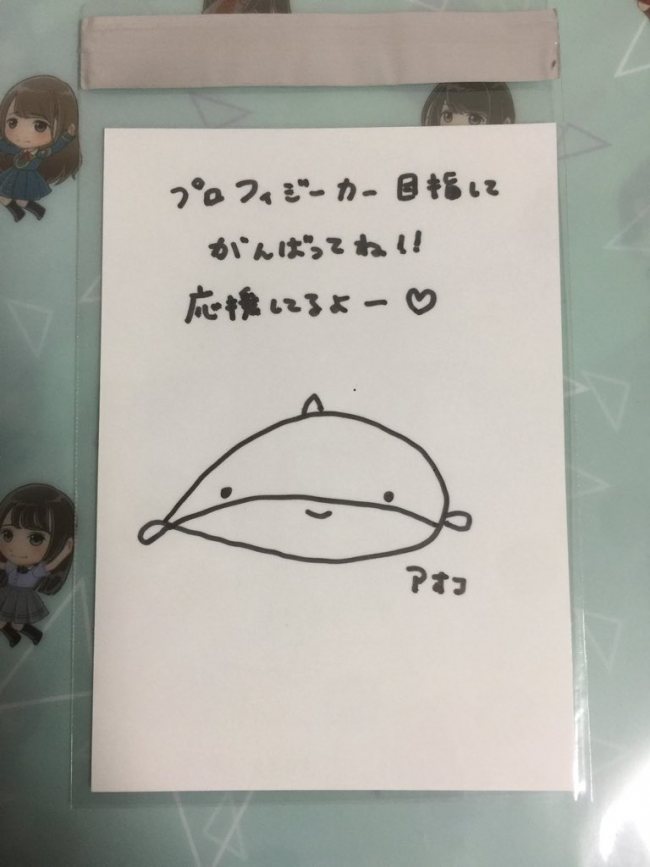 プロフィジーカー目指して
がんばってね!!
応援してるよー♡
アオコ